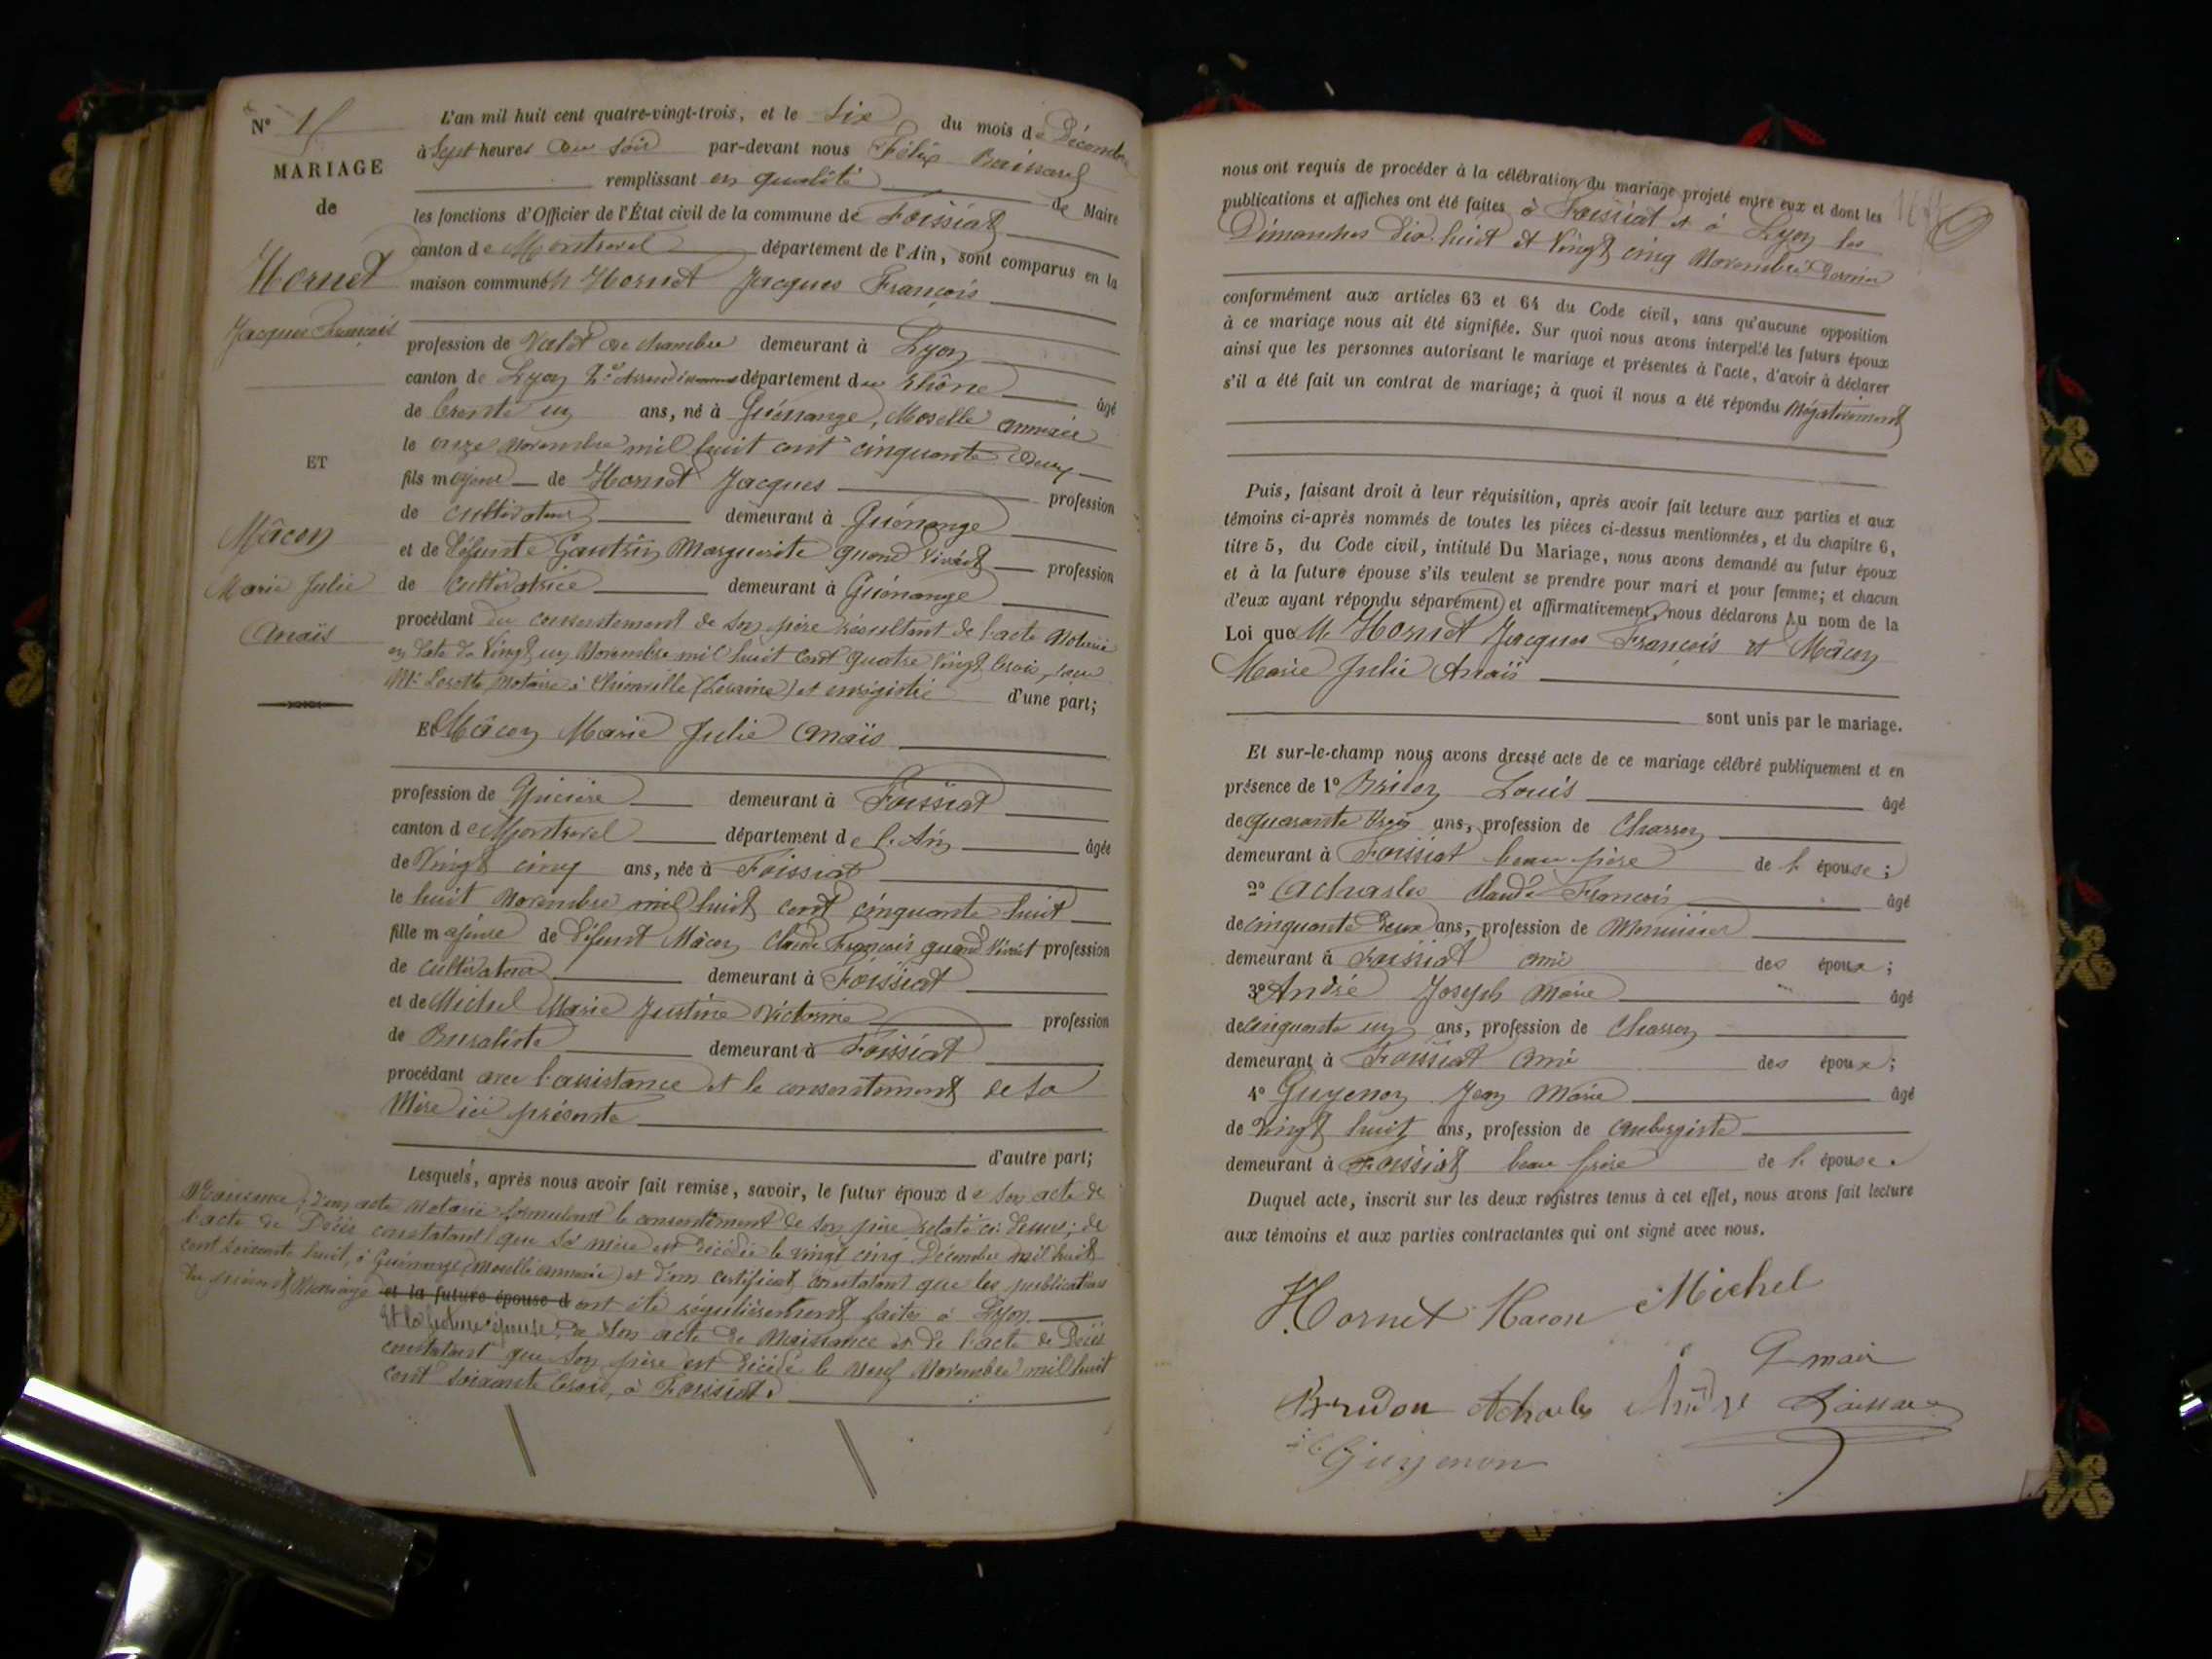 N° 15
MARIAGE
de
Hornet
Jacques François
ET
Mâcon
Marie Julie
Anaïs
L'an mil huit cent quatre-vingt-trois, et le Six du mois de Décembre
à Sept heures du soir par-devant nous Félix
remplissant en qualité de Maire
les fonctions d'Officier de l'État civil de la commune de Foissiat
canton de Montrevel département de l'Ain, sont comparus en la
maison commune Mr Hornet Jacques François
profession de Valet de chambre demeurant à Lyon
canton de Lyon 2e Arrondissement département du Rhône âgé
de trente un ans, né à Guénange, Moselle annexée
le onze Novembre mil huit cent cinquante deux
fils majeur de Hornet Jacques profession
de cultivateur demeurant à Guénange
et de défunte Gautrin Marguerite quand vivait profession
de cultivatrice demeurant à Guénange
procédant du consentement de son père résultant de l'acte Notarié
en date du vingt un Novembre mil huit cent quatre vingt trois, reçu
Me Notaire à Thionville (Lorraine) et enregistré d'une part;
Et Mâcon Marie Julie Anaïs
profession de Epicière demeurant à Foissiat
canton de Montrevel département de l'Ain âgée
de Vingt cinq ans, née à Foissiat
le huit Novembre mil huit cent cinquante huit
fille majeure de défunt Mâcon Claude François quand vivait profession
de cultivateur demeurant à Foissiat
et de Michel Marie Justine Victorine profession
de Buraliste demeurant à Foissiat
procédant avec l'assistance et le consentement de sa
Mère ici présente
d'autre part;
Lesquels, après nous avoir fait remise, savoir, le futur époux de son acte de
Naissance; d'un acte Notarié formulant le consentement de son père relaté ci-dessus; de
l'acte de Décès constatant que sa mère est décédée le vingt cinq Décembre mil huit
cent soixante huit, à Guénange (Moselle annexée) et d'un certificat constatant que les publications
du présent Mariage et la future épouse d ont été régulièrement faites à Lyon
Et la future épouse; de son acte de Naissance et de l'acte de Décès
constatant que son père est décédé le neuf Novembre mil huit
cent soixante trois, à Foissiat.
nous ont requis de procéder à la célébration du mariage projeté entre eux et dont les
publications et affiches ont été faites à Foissiat et à Lyon les
Dimanches dix-huit et Vingt cinq Novembre dernier
conformément aux articles 63 et 64 du Code civil, sans qu'aucune opposition
à ce mariage nous ait été signifiée. Sur quoi nous avons interpellé les futurs époux
ainsi que les personnes autorisant le mariage et présentes à l'acte, d'avoir à déclarer
s'il a été fait un contrat de mariage; à quoi il nous a été répondu Négativement
Puis, faisant droit à leur réquisition, après avoir fait lecture aux parties et aux
témoins ci-après nommés de toutes les pièces ci-dessus mentionnées, et du chapitre 6,
titre 5, du Code civil, intitulé Du Mariage, nous avons demandé au futur époux
et à la future épouse s'ils veulent se prendre pour mari et pour femme; et chacun
d'eux ayant répondu séparément et affirmativement, nous déclarons Au nom de la
Loi que Mr Hornet Jacques François et Mâcon
Marie Julie Anaïs
sont unis par le mariage.
Et sur-le-champ nous avons dressé acte de ce mariage célébré publiquement et en
présence de 1° Bridon Louis âgé
de quarante trois ans, profession de Charron
demeurant à Foissiat beau père de l' épouse;
2° Acharles Claude François âgé
de cinquante deux ans, profession de Menuisier
demeurant à Foissiat ami des époux;
3° André Joseph Marie âgé
de cinquante un ans, profession de Charron
demeurant à Foissiat ami des époux;
4° Guyenon Jean Marie âgé
de vingt huit ans, profession de aubergiste
demeurant à Foissiat beau frère de l' épouse.
Duquel acte, inscrit sur les deux registres tenus à cet effet, nous avons fait lecture
aux témoins et aux parties contractantes qui ont signé avec nous.
Hornet Macon Michel
Bridon Acharles André
Guyenon